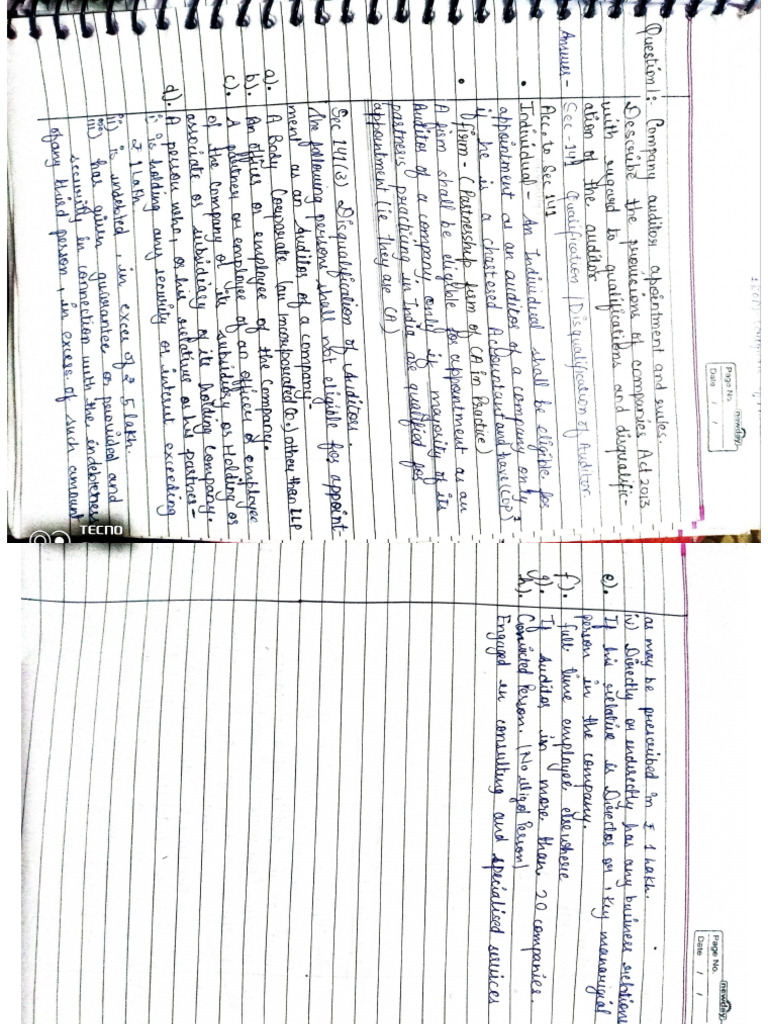 newday
Page No.
Date / /
Question 1: Company auditor apointment and rules.
Describe the provisions of companies Act 2013
with regard to qualifications and disqualific-
ation of the auditor
Answer - Sec - 141 Qualification / Disqualification of Auditor
Acc. to Sec 141
• Individual - An Individual shall be eligible for
appointment as an auditor of a company only
if he is a chartered Accountant and have (COP)
• firm - (Partnership firm of CA in Practice)
A firm shall be eligible for appointment as an
Auditor of a company only if majority of its
partners practicing in India are qualified for
appointment (ie they are CA)
Sec 141(3) Disqualification of Auditor.
The following persons shall not eligible for appoint-
ment as an Auditor of a company-
a). A Body Corporate (an Incorporated Co.) other than LLP
b). An officer or employee of the Company.
c). A partner or employee of an officer or employee
of the Company or its subsidiary or Holding or
associate or subsidiary of its holding Company.
d). A person who, or his relative or his partner-
i) is holding any security or interest exceeding
₹ 1 lakh.
ii) is indebted, in excer of ₹ 5 lakh.
iii) has given guarantee or provided and
security in connection with the indebtness
of any third person, in excess of such amount
TECNO
newday
Page No.
Date / /
as may be prescribed in ₹ 1 Lakh.
iv) Directly or indirectly has any business relations
e). If his relative is Director or key manarigial
person in the company.
f). full time employee elsewhere
g). If Auditor in more than 20 companies.
h). Convicted Person. (No Person)
Engaged in consulting and specialised services